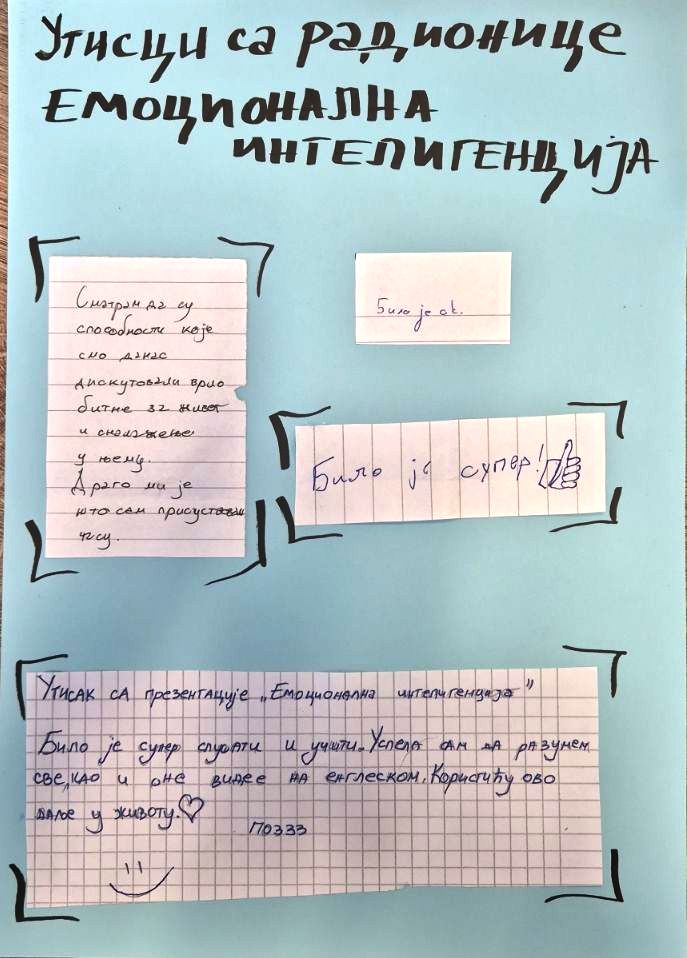 Утисци са радионице
ЕМОЦИОНАЛНА
ИНТЕЛИГЕНЦИЈА
Сматрам да су
способности које
смо данас
дискутовали врло
битне за живот
и сналажење
у њему.
Драго ми је
што сам присуствовала
часу.
Било је ок.
Било је супер!
Утисак са презентације „Емоционална интелигенција"
Било је супер слушати и учити. Успела сам да разумем
све, као и оне видее на енглеском. Користићу ово
даље у животу.
поззз